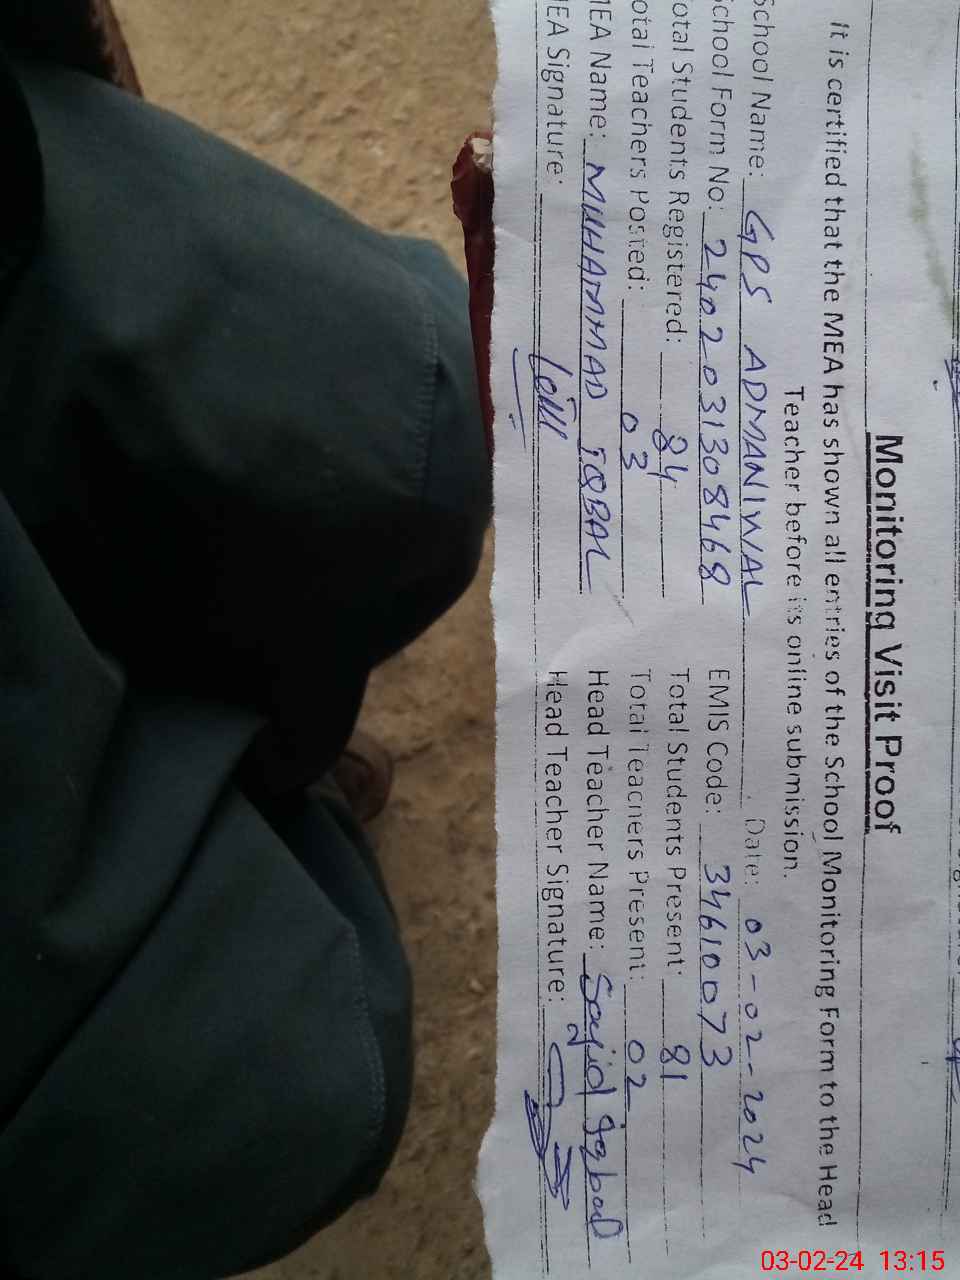 Monitoring Visit Proof
It is certified that the MEA has shown all entries of the School Monitoring Form to the Head
Teacher before its online submission.
School Name: GPS ADMANIWAL Date: 03-02-2024
School Form No: 2402031308468 EMIS Code: 34610073
Total Students Registered: 84 Total Students Present: 81
Total Teachers Posted: 03 Total Teachers Present: 02
MEA Name: MUHAMMAD IQBAL Head Teacher Name: Sajid iqbal
MEA Signature: Head Teacher Signature:
03-02-24 13:15